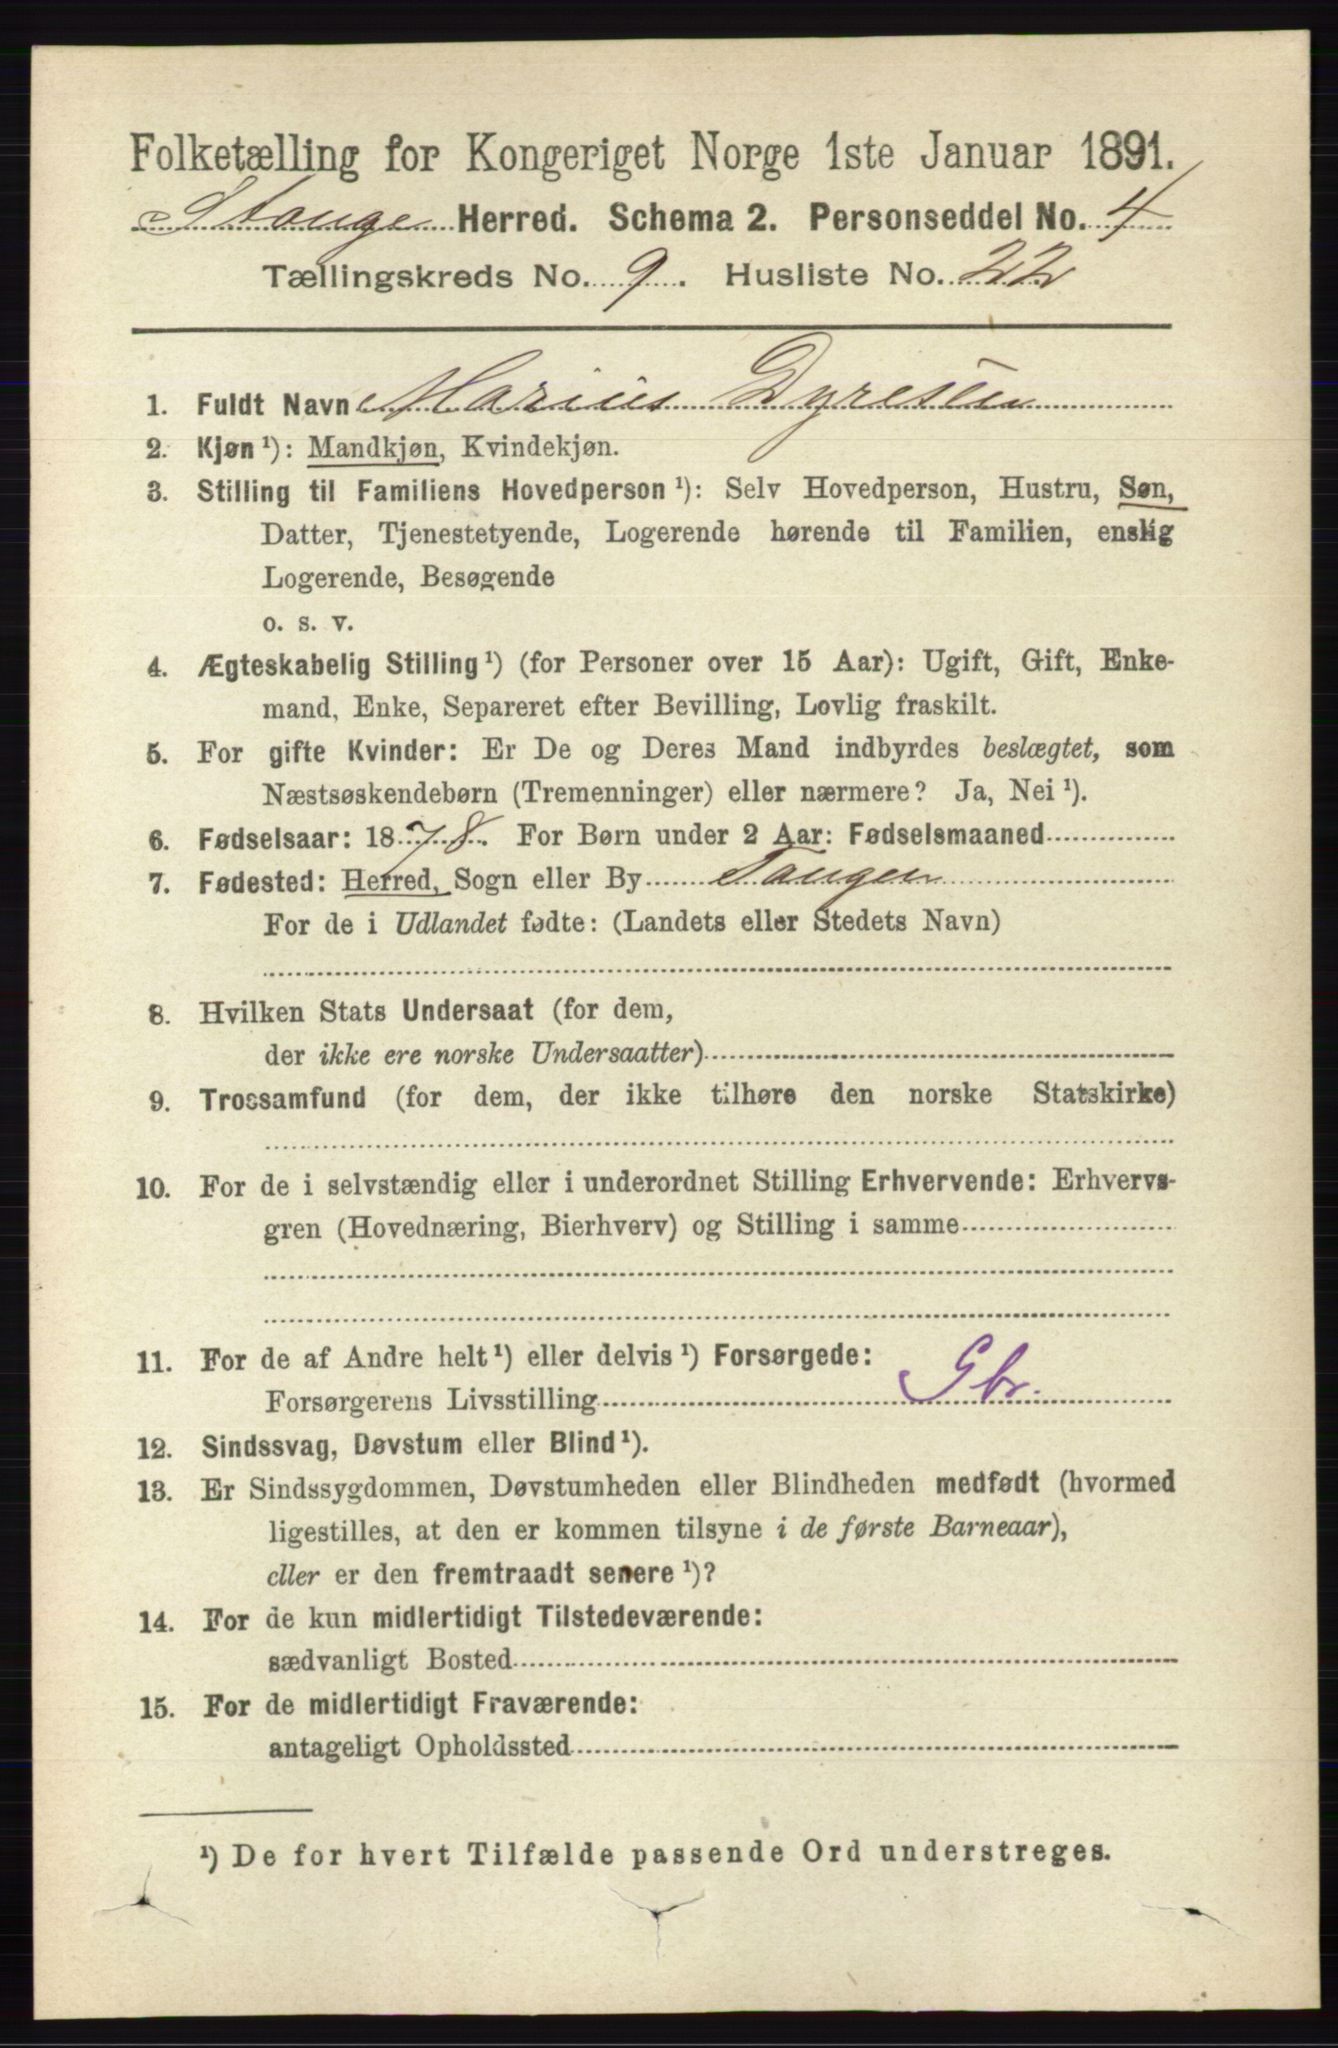 Folketælling for Kongeriget Norge 1ste Januar 1891.
Stange Herred. Schema 2. Personseddel No. 4
Tællingskreds No. 9. Husliste No. 22
1. Fuldt Navn Marius Dyresen
2. Kjøn ¹): Mandkjøn, Kvindekjøn.
3. Stilling til Familiens Hovedperson ¹): Selv Hovedperson, Hustru, Søn,
Datter, Tjenestetyende, Logerende hørende til Familien, enslig
Logerende, Besøgende
o. s. v.
4. Ægteskabelig Stilling ¹) (for Personer over 15 Aar): Ugift, Gift, Enke-
mand, Enke, Separeret efter Bevilling, Lovlig fraskilt.
5. For gifte Kvinder: Er De og Deres Mand indbyrdes beslægtet, som
Næstsøskendebørn (Tremenninger) eller nærmere? Ja, Nei ¹).
6. Fødselsaar: 1878. For Børn under 2 Aar: Fødselsmaaned
7. Fødested: Herred, Sogn eller By Tangen
For de i Udlandet fødte: (Landets eller Stedets Navn)
8. Hvilken Stats Undersaat (for dem,
der ikke ere norske Undersaatter)
9. Trossamfund (for dem, der ikke tilhøre den norske Statskirke)
10. For de i selvstændig eller i underordnet Stilling Erhvervende: Erhvervs-
gren (Hovednæring, Bierhverv) og Stilling i samme
11. For de af Andre helt ¹) eller delvis ¹) Forsørgede:
Forsørgerens Livsstilling Gbr.
12. Sindssvag, Døvstum eller Blind ¹).
13. Er Sindssygdommen, Døvstumheden eller Blindheden medfødt (hvormed
ligestilles, at den er kommen tilsyne i de første Barneaar),
eller er den fremtraadt senere ¹)?
14. For de kun midlertidigt Tilstedeværende:
sædvanligt Bosted
15. For de midlertidigt Fraværende:
antageligt Opholdssted
¹) De for hvert Tilfælde passende Ord understreges.